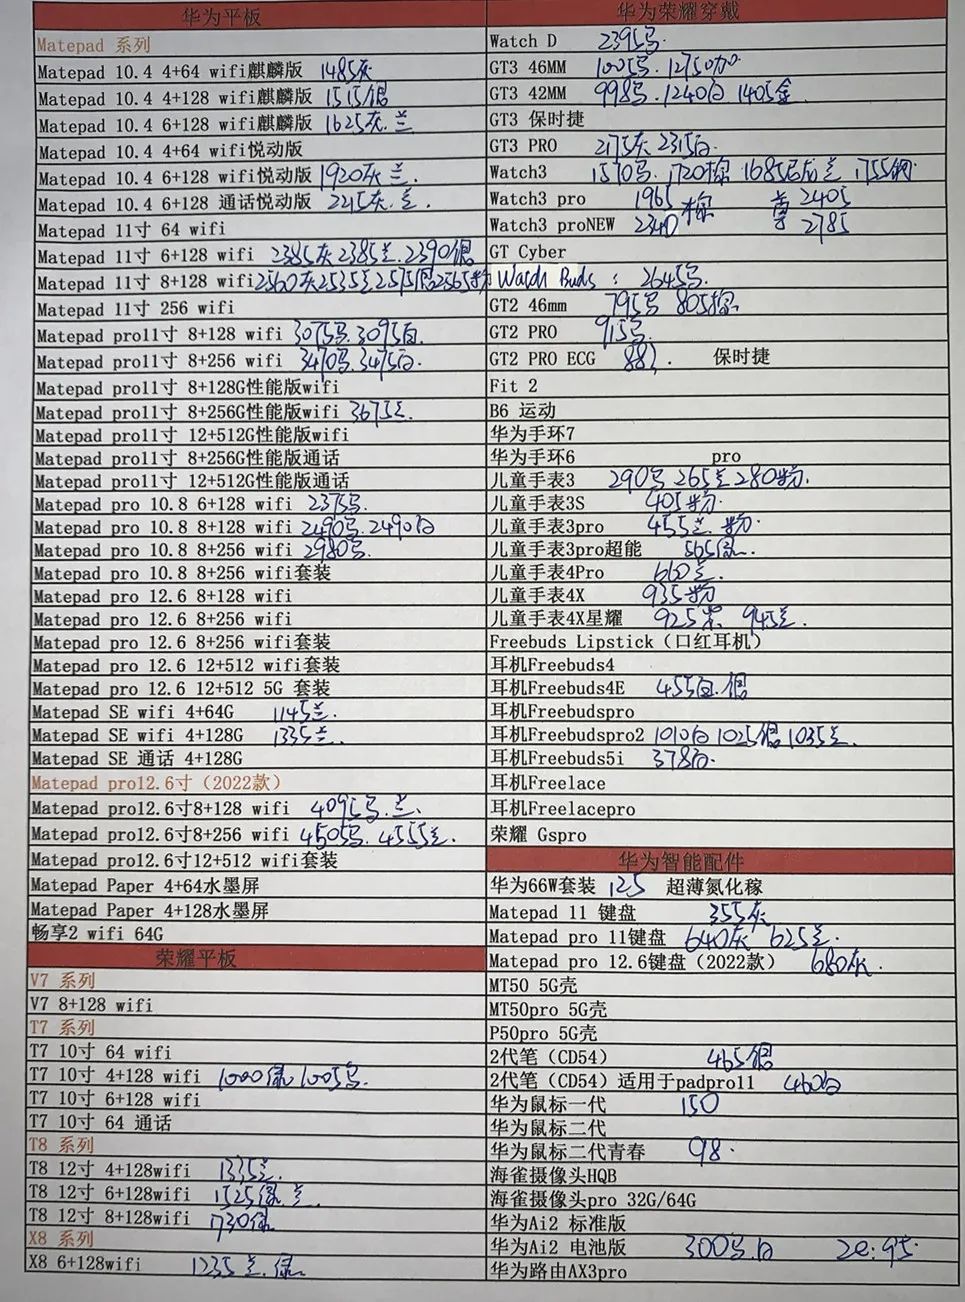 华为平板
Matepad 系列
Matepad 10.4 4+64 wifi麒麟版 1485灰
Matepad 10.4 4+128 wifi麒麟版 1515银
Matepad 10.4 6+128 wifi麒麟版 1625灰.兰
Matepad 10.4 4+64 wifi悦动版
Matepad 10.4 6+128 wifi悦动版 1920灰兰.
Matepad 10.4 6+128 通话悦动版 2245灰.兰.
Matepad 11寸 64 wifi
Matepad 11寸 6+128 wifi 2385灰 2385兰.2390银
Matepad 11寸 8+128 wifi 2560灰2535兰2575银2565粉
Matepad 11寸 256 wifi
Matepad pro11寸 8+128 wifi 3075黑.3095白.
Matepad pro11寸 8+256 wifi 3470黑.3475白.
Matepad pro11寸 8+128G性能版wifi
Matepad pro11寸 8+256G性能版wifi 3675兰.
Matepad pro11寸 12+512G性能版wifi
Matepad pro11寸 8+256G性能版通话
Matepad pro11寸 12+512G性能版通话
Matepad pro 10.8 6+128 wifi 2375黑.
Matepad pro 10.8 8+128 wifi 2490黑.2490白
Matepad pro 10.8 8+256 wifi 2980黑.
Matepad pro 10.8 8+256 wifi套装
Matepad pro 12.6 8+128 wifi
Matepad pro 12.6 8+256 wifi
Matepad pro 12.6 8+256 wifi套装
Matepad pro 12.6 12+512 wifi套装
Matepad pro 12.6 12+512 5G 套装
Matepad SE wifi 4+64G 1145兰.
Matepad SE wifi 4+128G 1335兰.
Matepad SE 通话 4+128G
Matepad pro12.6寸（2022款）
Matepad pro12.6寸8+128 wifi 4095黑.兰.
Matepad pro12.6寸8+256 wifi 4505黑.4555兰.
Matepad pro12.6寸12+512 wifi套装
Matepad Paper 4+64水墨屏
Matepad Paper 4+128水墨屏
畅享2 wifi 64G
荣耀平板
V7 系列
V7 8+128 wifi
T7 系列
T7 10寸 64 wifi
T7 10寸 4+128 wifi 1000绿 1005黑.
T7 10寸 6+128 wifi
T7 10寸 64 通话
T8 系列
T8 12寸 4+128wifi 1335兰.
T8 12寸 6+128wifi 1525绿.兰.
T8 12寸 8+128wifi 1730绿
X8 系列
X8 6+128wifi 1235兰.绿.
华为荣耀穿戴
Watch D 2395黑.
GT3 46MM 1005黑.1275加
GT3 42MM 998黑.1240白 1405金
GT3 保时捷
GT3 PRO 2175灰 2315白.
Watch3 1570黑.1720棕 1755钢
Watch3 pro 1965 棕 尊 2405
Watch3 proNEW 2340 2785
GT Cyber
Watch Buds : 2645黑.
GT2 46mm 795黑 805棕.
GT2 PRO 915黑.
GT2 PRO ECG 882. 保时捷
Fit 2
B6 运动
华为手环7
华为手环6 pro
儿童手表3 290黑 265兰 280粉.
儿童手表3S 405粉.
儿童手表3pro 455兰.粉.
儿童手表3pro超能 565绿.
儿童手表4Pro 660兰.
儿童手表4X 935粉
儿童手表4X星耀 925紫 945兰.
Freebuds Lipstick（口红耳机）
耳机Freebuds4
耳机Freebuds4E 455白.银
耳机Freebudspro
耳机Freebudspro2 1010白 1025银 1035兰.
耳机Freebuds5i 378白.
耳机Freelace
耳机Freelacepro
荣耀 Gspro
华为智能配件
华为66W套装 125 超薄氮化稼
Matepad 11 键盘 355灰
Matepad pro 11键盘 640灰 625兰.
Matepad pro 12.6键盘（2022款） 680灰.
MT50 5G壳
MT50pro 5G壳
P50pro 5G壳
2代笔（CD54） 465银
2代笔（CD54）适用于padpro11 460白
华为鼠标一代 150
华为鼠标二代
华为鼠标二代青春 98.
海雀摄像头HQB
海雀摄像头pro 32G/64G
华为Ai2 标准版
华为Ai2 电池版 300黑.白 2e:95.
华为路由AX3pro